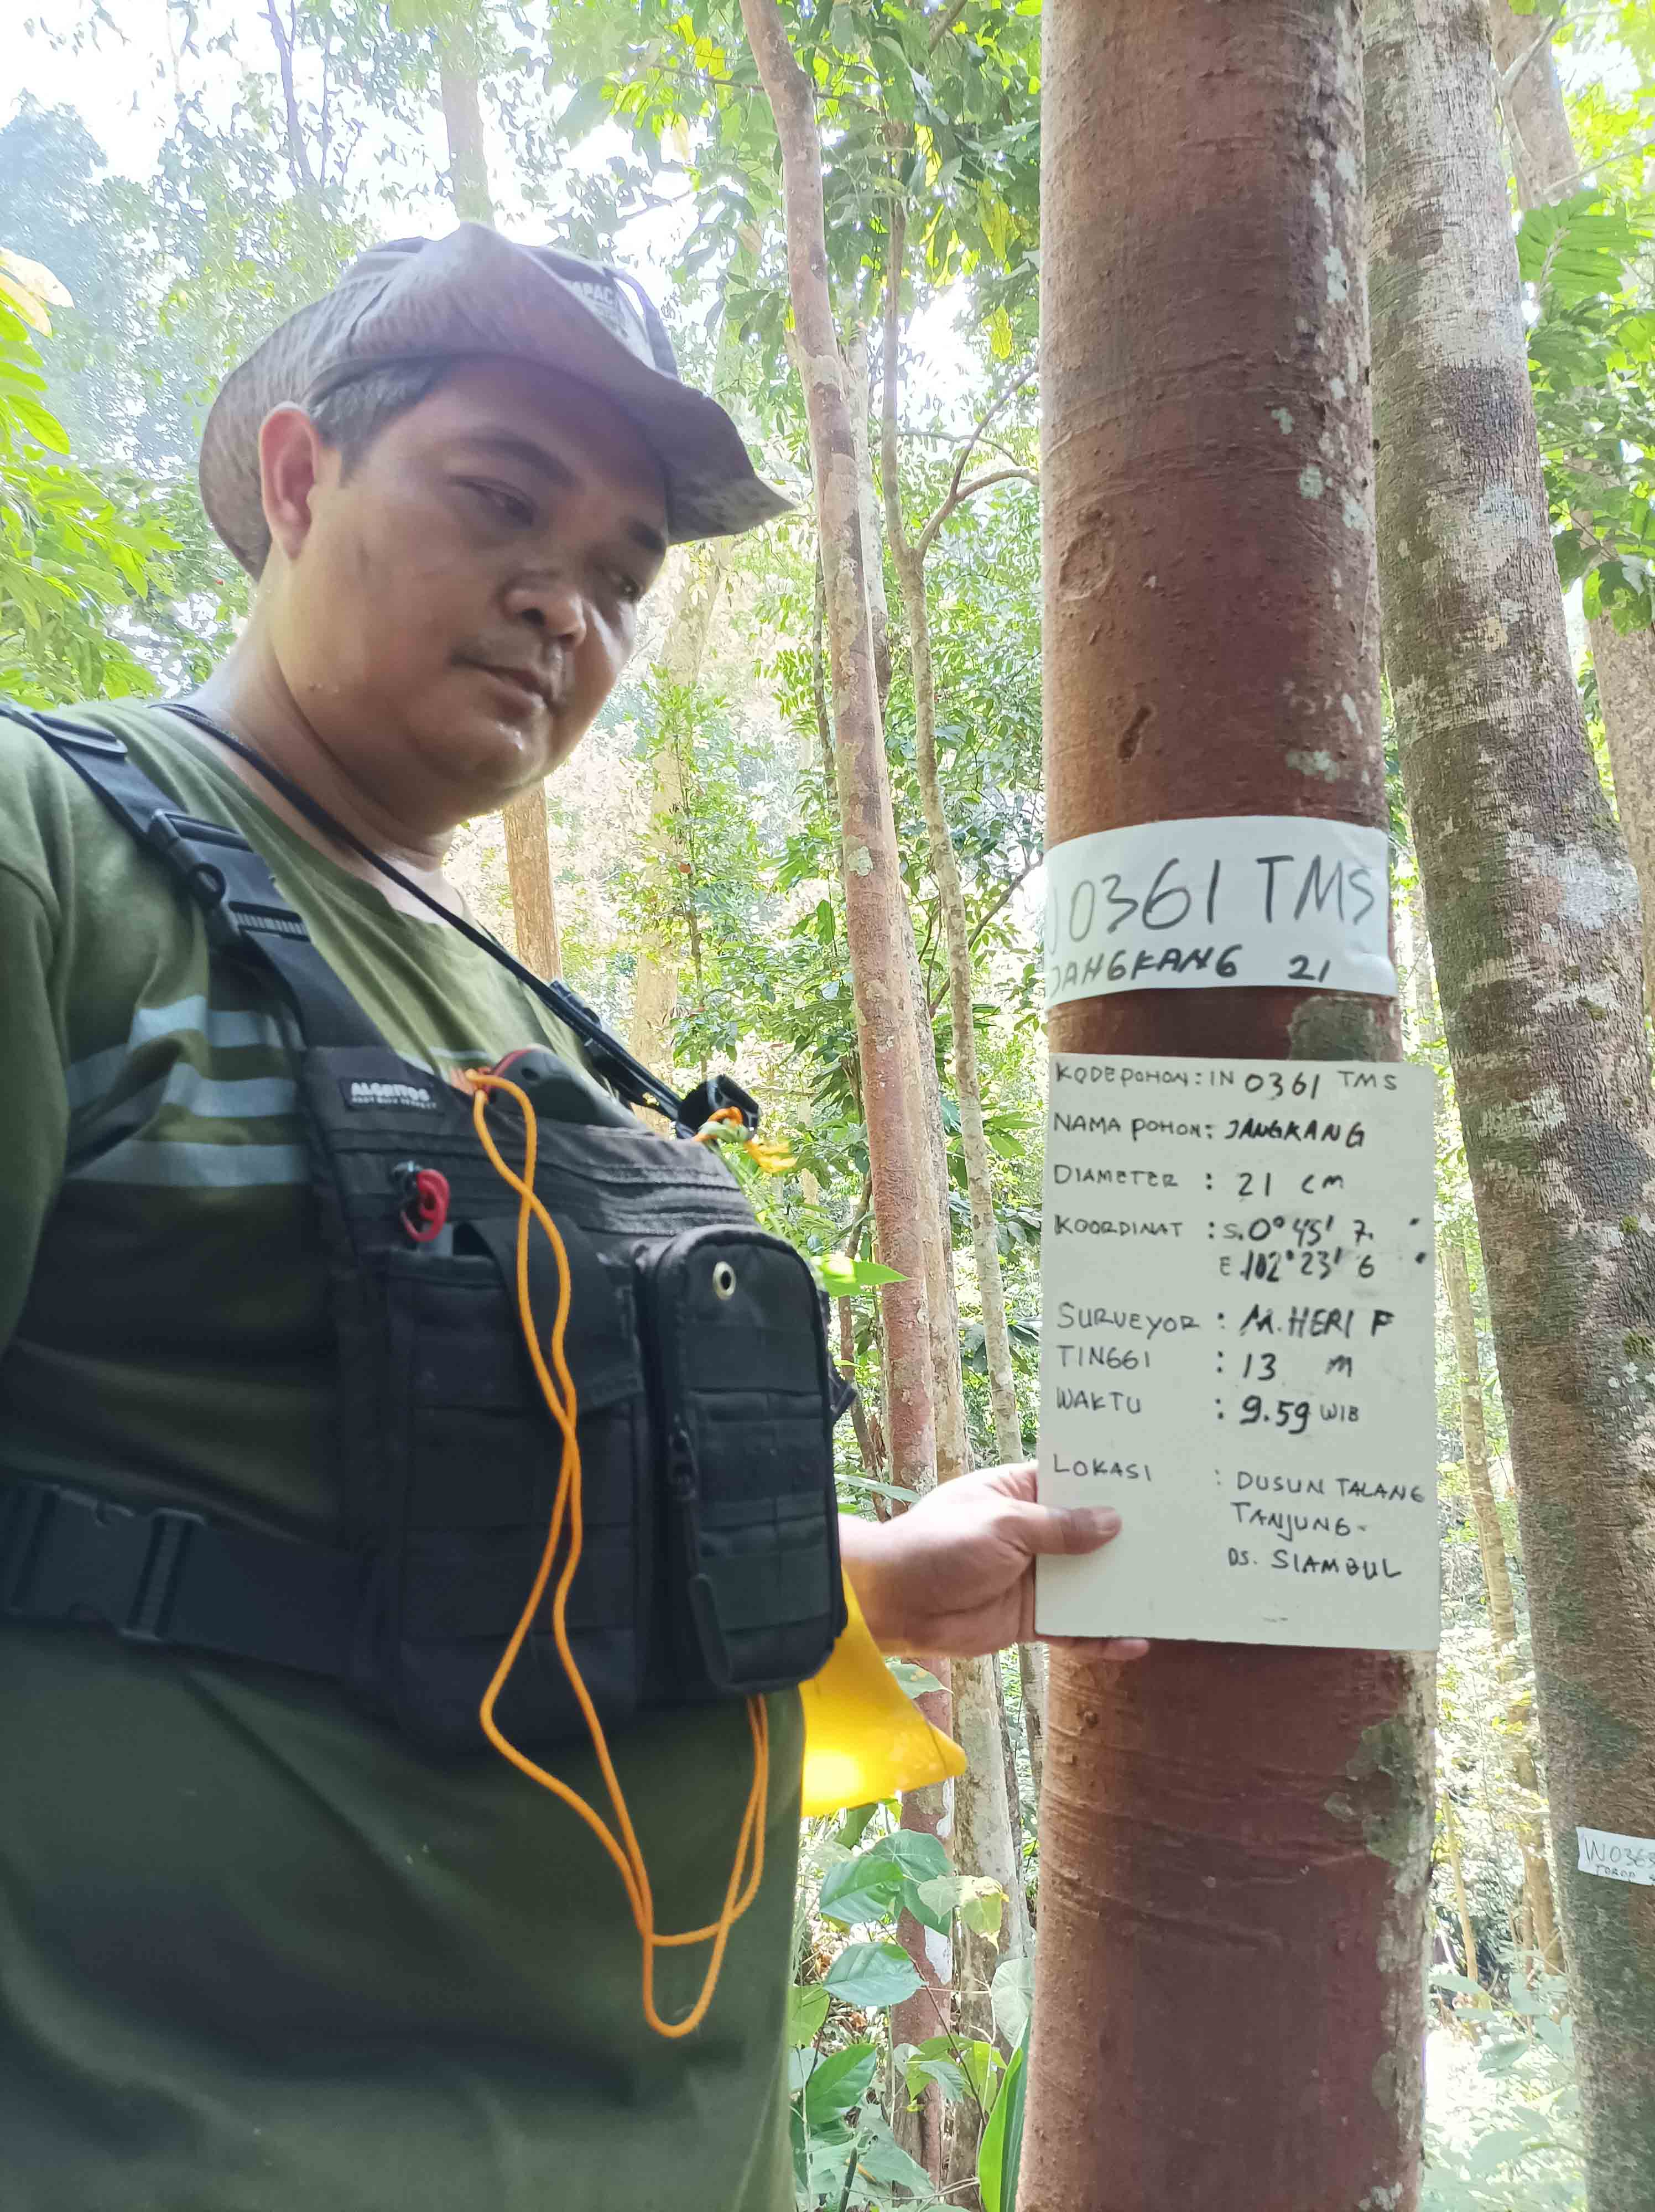 IMPAC
0361 TMS
JANGKANG 21
KODE POHON : IN 0361 TMS
NAMA POHON : JANGKANG
DIAMETER : 21 cm
KOORDINAT : S. 0° 45' 7. "
E. 102° 23' 6 "
SURVEYOR : M. HERI F
TINGGI : 13 M
WAKTU : 9.59 WIB
LOKASI : DUSUN TALANG
TANJUNG-
DS. SIAMBUL
ALGRITOS